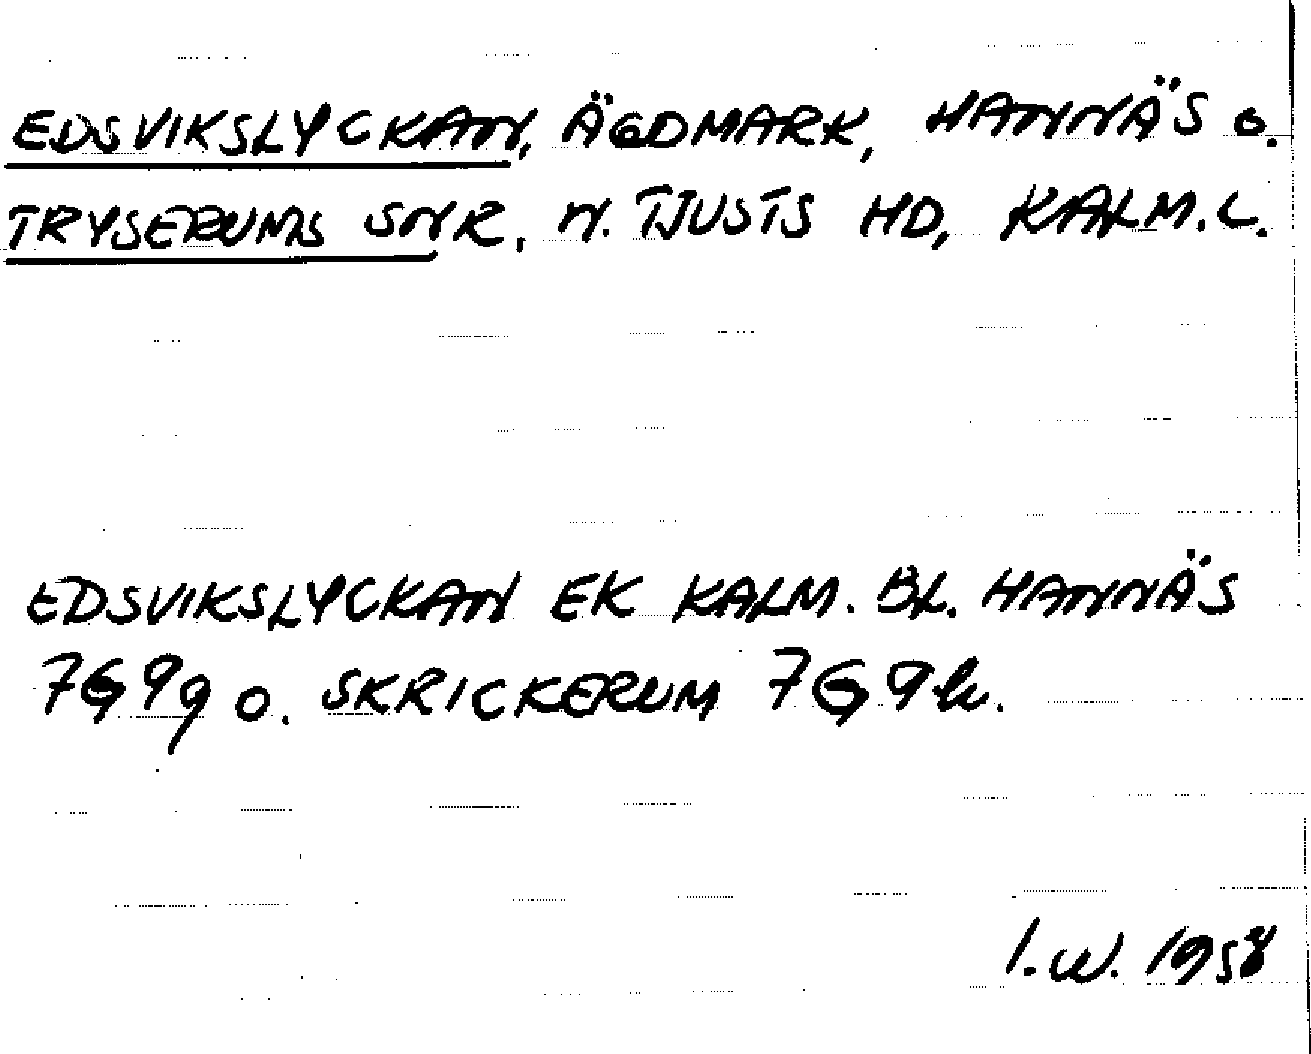 EDSVIKSLYCKAN, ÄGDMARK, HANNÄS O.
TRYSERUMS SNR, N. TJUSTS HD, KALM. L.
EDSVIKSLYCKAN EK KALM. BL. HANNÄS
7G9g O. SKRICKERUM 7G9h.
I.W. 1958